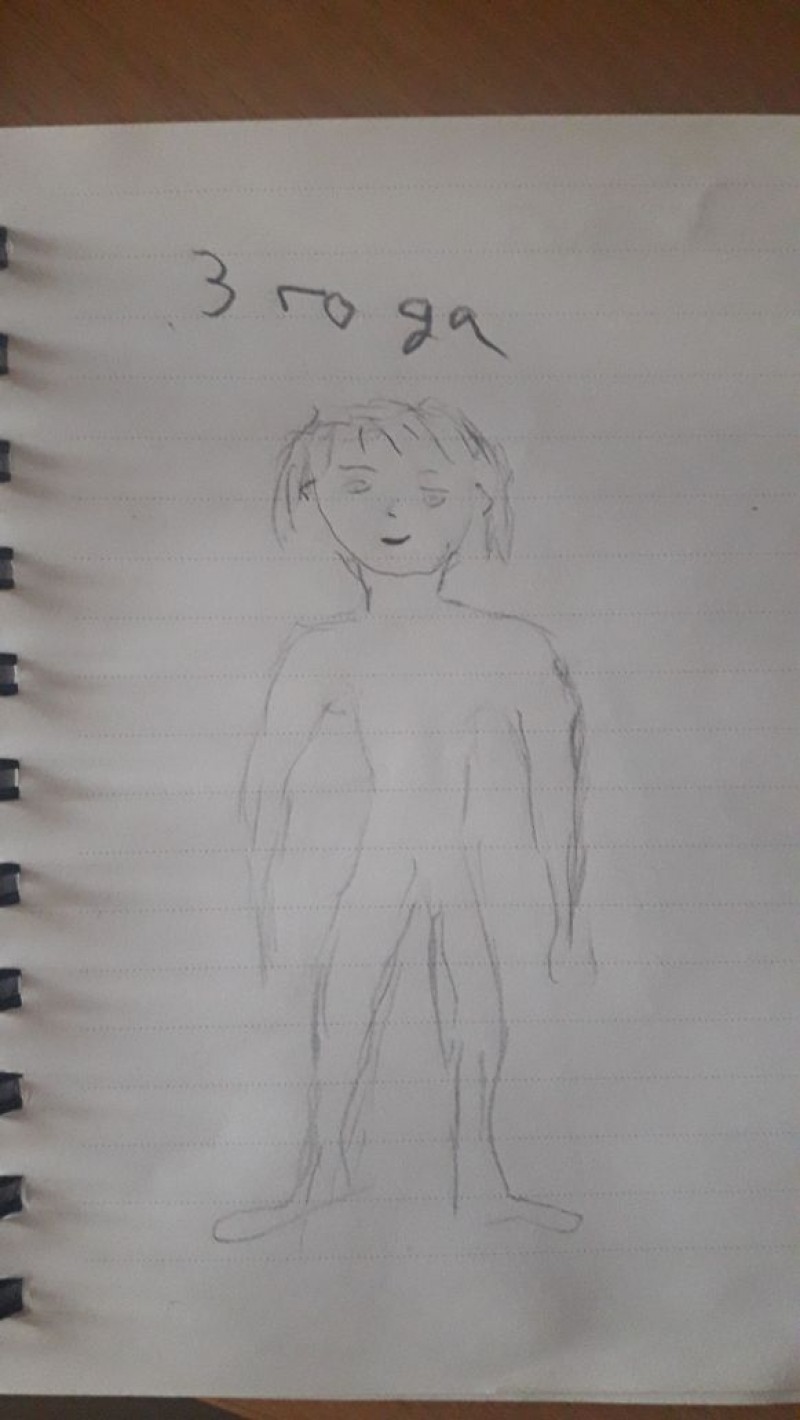 3 года